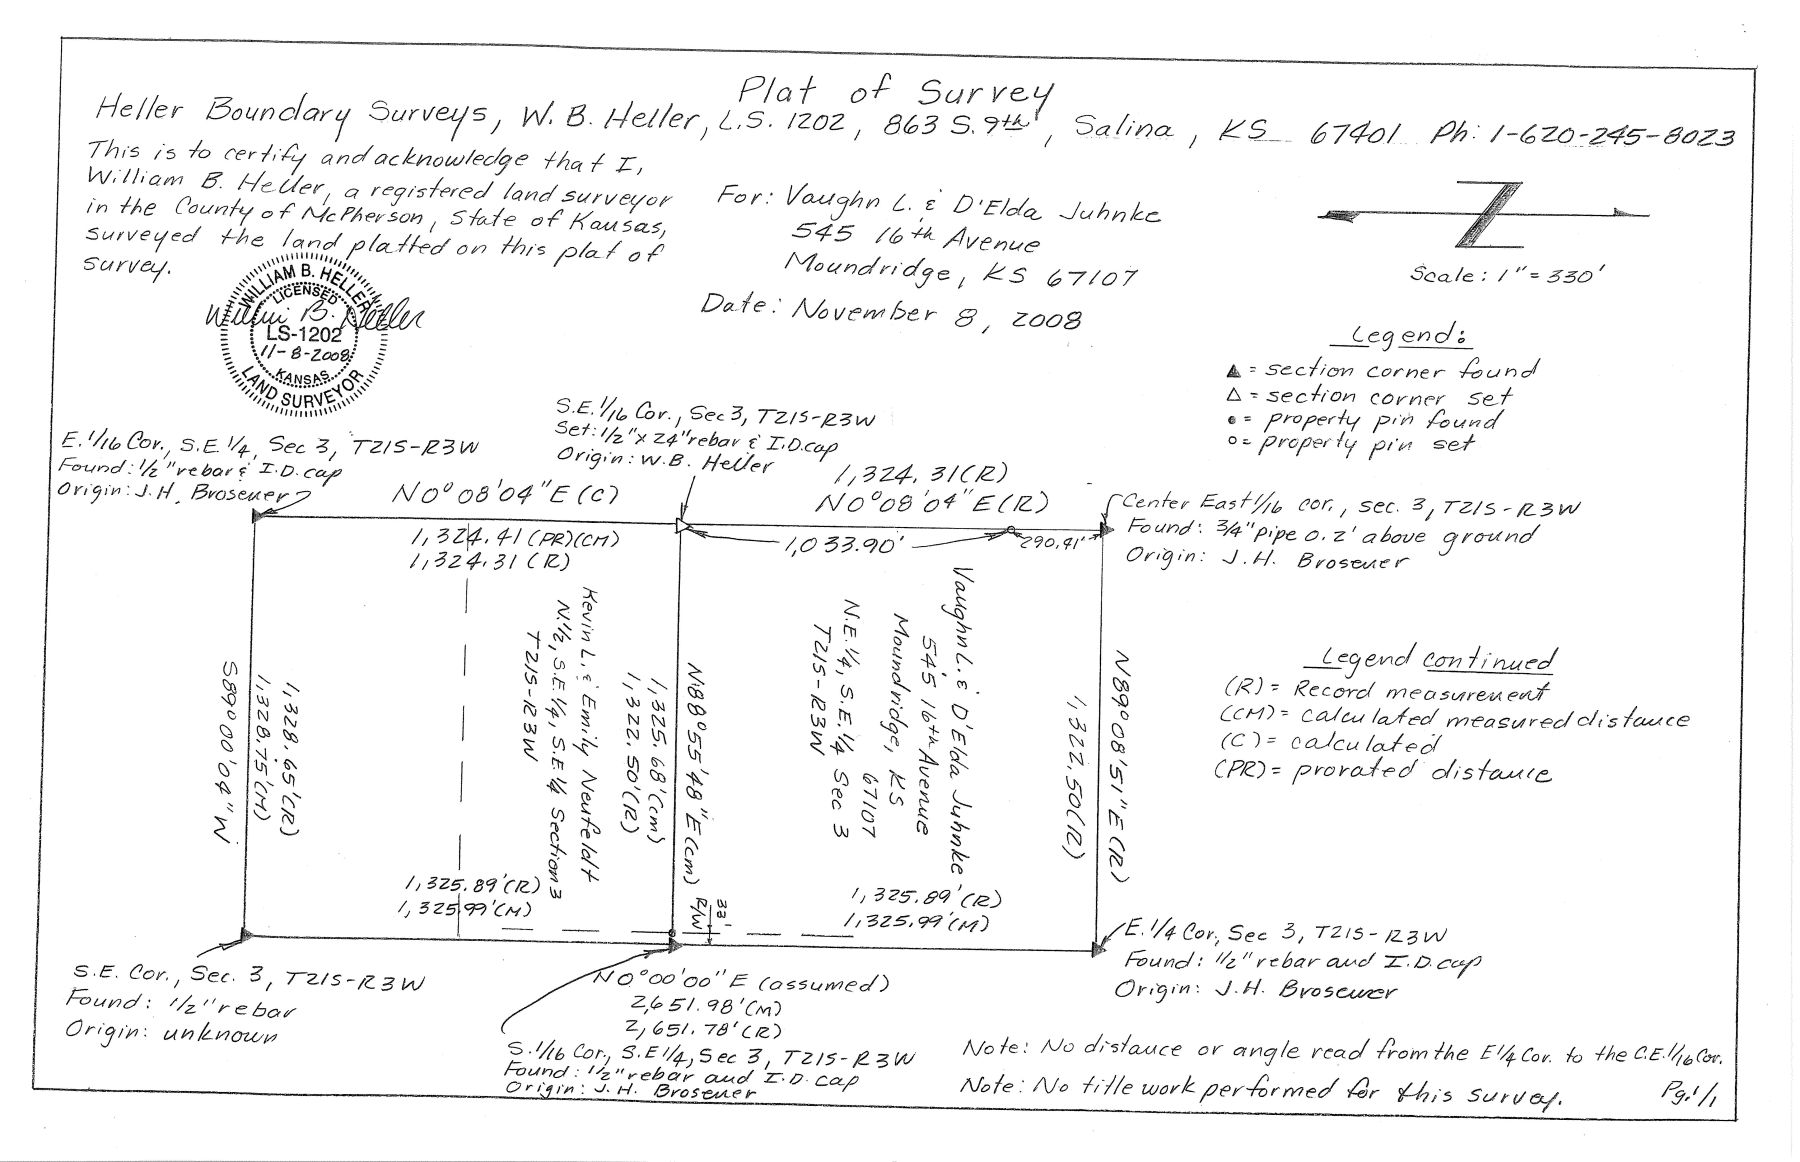 Plat of Survey
Heller Boundary Surveys, W. B. Heller, L.S. 1202, 863 S. 9th, Salina, KS 67401 Ph: 1-620-245-8023
This is to certify and acknowledge that I,
William B. Heller, a registered land surveyor
in the County of McPherson, State of Kansas,
surveyed the land platted on this plat of
survey.
For: Vaughn L. & D'Elda Juhnke
545 16th Avenue
Moundridge, KS 67107
Date: November 8, 2008
WILLIAM B. HELLER
LICENSED
William B. Heller
LS-1202
11-8-2008
KANSAS
LAND SURVEYOR
Scale: 1" = 330'
Legend:
▲ = section corner found
△ = section corner set
● = property pin found
○ = property pin set
E. 1/16 Cor., S.E. 1/4, Sec 3, T21S-R3W
Found: 1/2" rebar & I.D. cap
Origin: J.H. Brosener
S.E. 1/16 Cor., Sec 3, T21S-R3W
Set: 1/2" x 24" rebar & I.D. cap
Origin: W.B. Heller
N0°08'04"E (C)
1,324.41 (PR)(CM)
1,324.31 (R)
1,324.31(R)
N0°08'04"E(R)
1,033.90'
290.41'
Center East 1/16 cor., sec. 3, T21S-R3W
Found: 3/4" pipe 0.2' above ground
Origin: J.H. Brosener
S89°00'04"W
1,328.75'(M)
1,328.65'(R)
Kevin L. & Emily Neufeldt
N.1/2, S.E. 1/4, S.E 1/4 Section 3
T21S-R3W
N88°55'48"E(cm)
1,325.68'(cm)
1,322.50'(R)
Vaughn L. & D'Elda Juhnke
545 16th Avenue
Moundridge, KS
67107
N.E. 1/4, S.E. 1/4 Sec 3
T21S-R3W
N89°08'51"E(R)
1,322.50(R)
Legend continued
(R) = Record measurement
(CM) = calculated measured distance
(C) = calculated
(PR) = prorated distance
1,325.89'(R)
1,325.99'(M)
33'
R/W
1,325.89'(R)
1,325.99'(M)
S.E. Cor., Sec. 3, T21S-R3W
Found: 1/2" rebar
Origin: unknown
N0°00'00"E (assumed)
2,651.98'(M)
2,651.78'(R)
E. 1/4 Cor., Sec 3, T21S-R3W
Found: 1/2" rebar and I.D. cap
Origin: J.H. Brosener
S. 1/16 Cor., S.E 1/4, Sec 3, T21S-R3W
Found: 1/2" rebar and I.D. cap
Origin: J.H. Brosener
Note: No distance or angle read from the E 1/4 Cor. to the C.E. 1/16 Cor.
Note: No title work performed for this survey.
Pg. 1/1